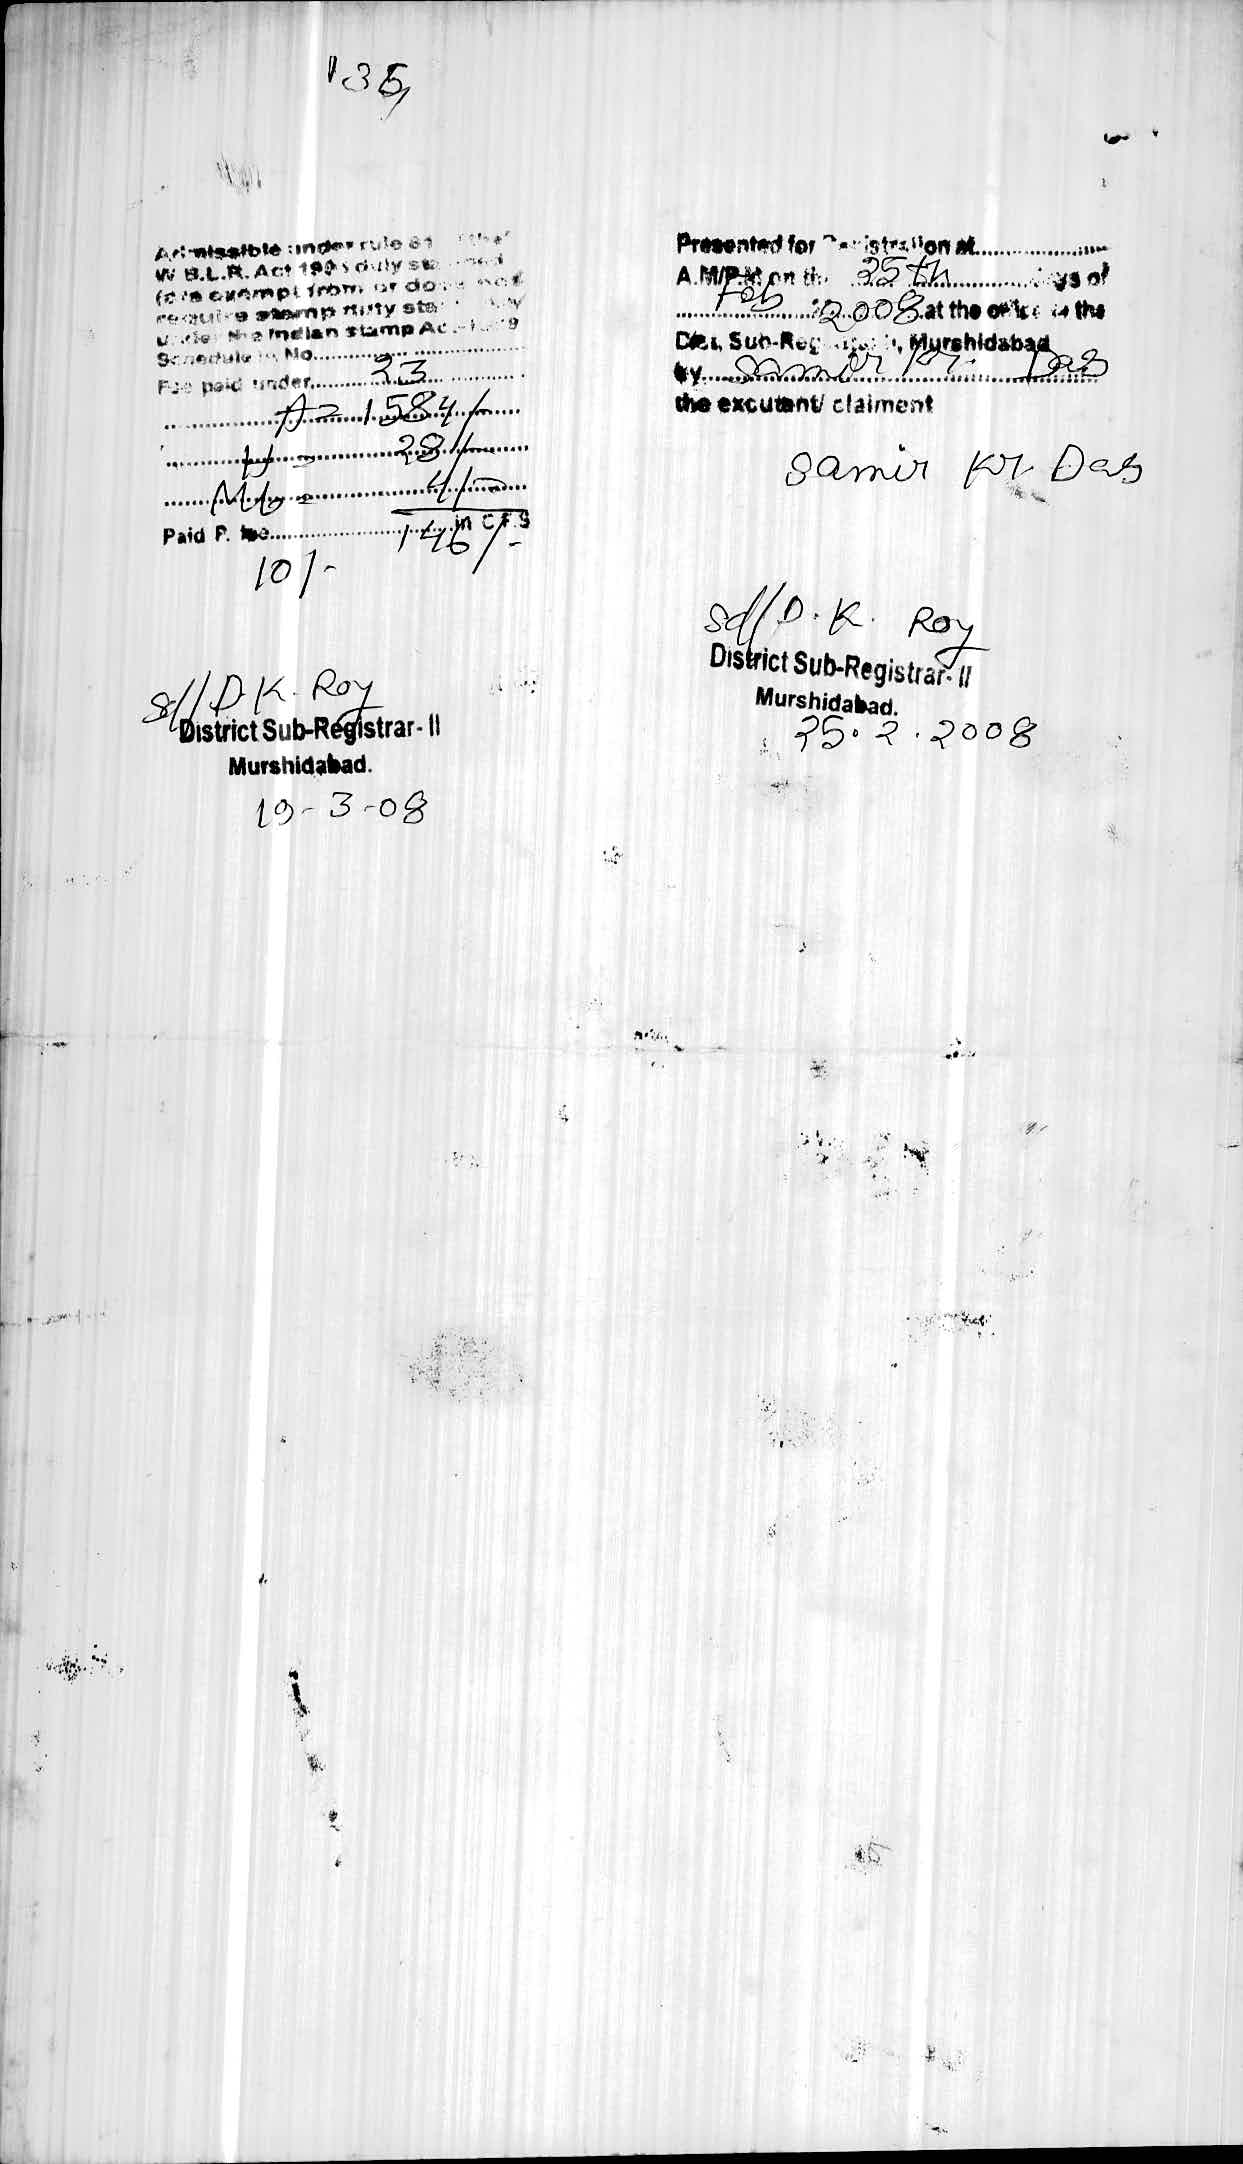 135
Admissible under rule 21 of the
W.B.L.R. Act 199 duly stamped
(or exempt from or does not
require stamp duty stamp duty
under the Indian stamp Act 1899
Schedule No.....................
Fee paid under.......23.......
A = 1584/-
H = 28/-
M(b) = 4/-
Paid P. fee.....................in C.F.S
10/-
sd/ D. K. Roy
District Sub-Registrar-II
Murshidabad.
19-3-08
Presented for Registration at.....................
A.M/P.M on the 25th days of
Feb 2008 at the office of the
Dist. Sub-Registrar, Murshidabad
by Samir Kr. Das
the excutant/ claiment
Samir Kr Das
sd/ D. K. Roy
District Sub-Registrar-II
Murshidabad.
25.2.2008